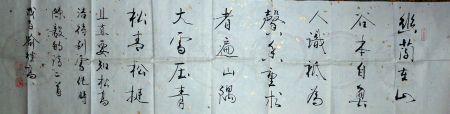 幽蘭在山
谷本自無
人識祗為
馨香重求
者遍山隅
大雪压青
松青松挺
且直要知松高
洁待到雪化時
陳毅的詩二首